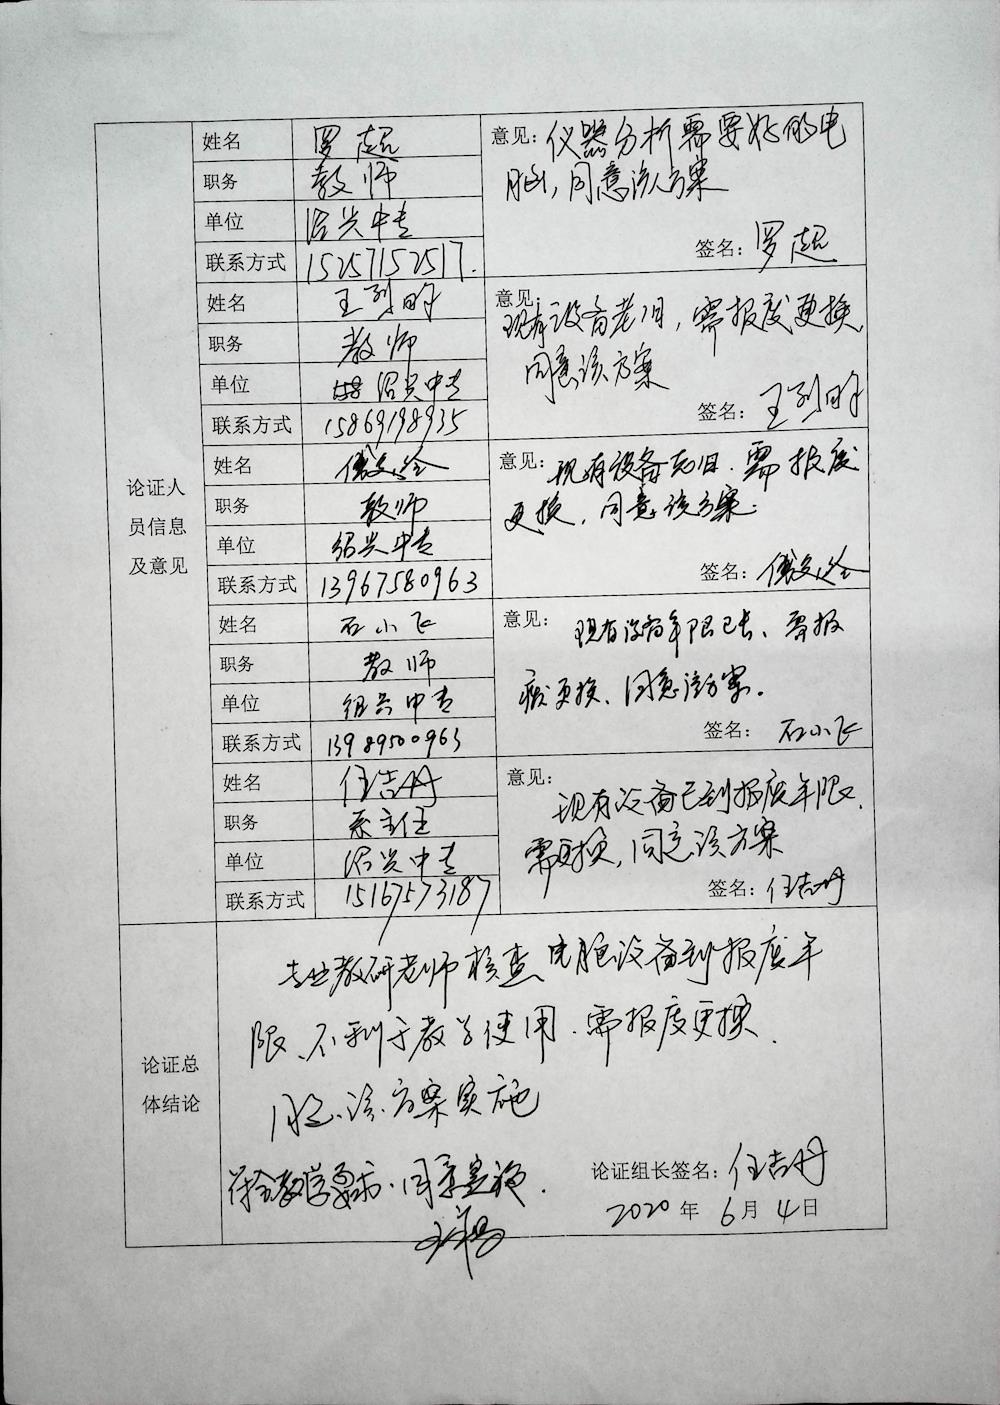 论证人
员信息
及意见
姓名 罗超
职务 教师
单位 绍兴中专
联系方式 15257152517.
意见：仪器分析需要好的电
脑，同意该方案
签名：罗超
姓名 王烈明
职务 教师
单位 绍兴中专
联系方式 15869198935
意见：
现有设备老旧，需报废更换，
同意该方案
签名：王烈明
姓名
职务 教师
单位 绍兴中专
联系方式 13967580963
意见：现有设备老旧．需报废
更换，同意该方案．
签名：
姓名 石小飞
职务 教师
单位 绍兴中专
联系方式 13989500963
意见：现有设备年限已去、需报
废更换、同意该方案．
签名：石小飞
姓名 任吉丹
职务 系主任
单位 绍兴中专
联系方式 15167573187
意见：现有设备已到报废年限．
需更换，同意该方案
签名：任吉丹
论证总
体结论
专业教研老师核查电脑设备到报废年
限、不利于教学使用．需报废更换．
同意该方案实施
符合教学要求．同意实施．
论证组长签名：任吉丹
2020年6月4日